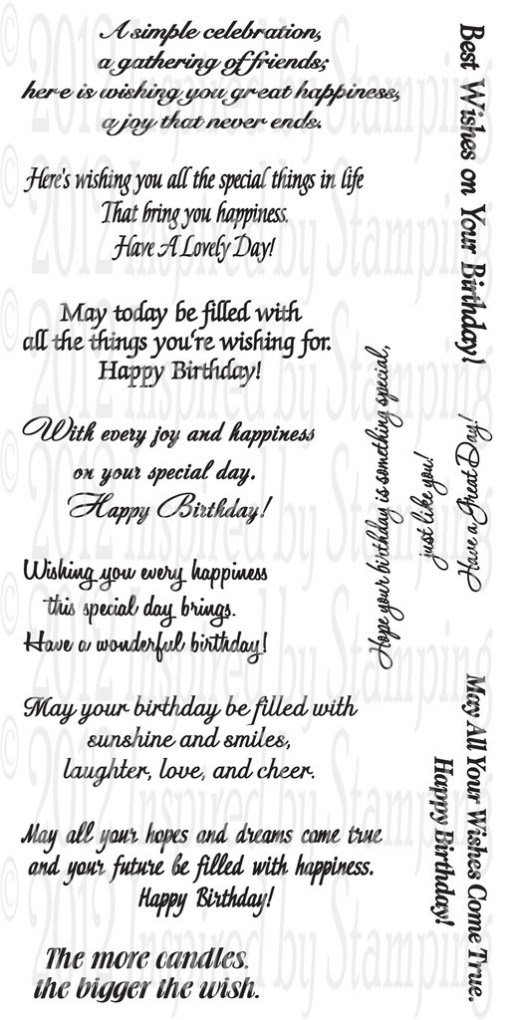 A simple celebration,
a gathering of friends;
here is wishing you great happiness,
a joy that never ends.
Here's wishing you all the special things in life
That bring you happiness.
Have A Lovely Day!
May today be filled with
all the things you're wishing for.
Happy Birthday!
With every joy and happiness
on your special day.
Happy Birthday!
Wishing you every happiness
this special day brings.
Have a wonderful birthday!
May your birthday be filled with
sunshine and smiles,
laughter, love, and cheer.
May all your hopes and dreams come true
and your future be filled with happiness.
Happy Birthday!
The more candles.
the bigger the wish.
Best Wishes on Your Birthday!
Hope your birthday is something special,
just like you!
Have a Great Day!
May All Your Wishes Come True.
Happy Birthday!
© 2012 Inspired by Stamping
© 2012 Inspired by Stamping
© 2012 Inspired by Stamping
© 2012 Inspired by Stamping
© 2012 Inspired by Stamping
© 2012 Inspired by Stamping
© 2012 Inspired by Stamping